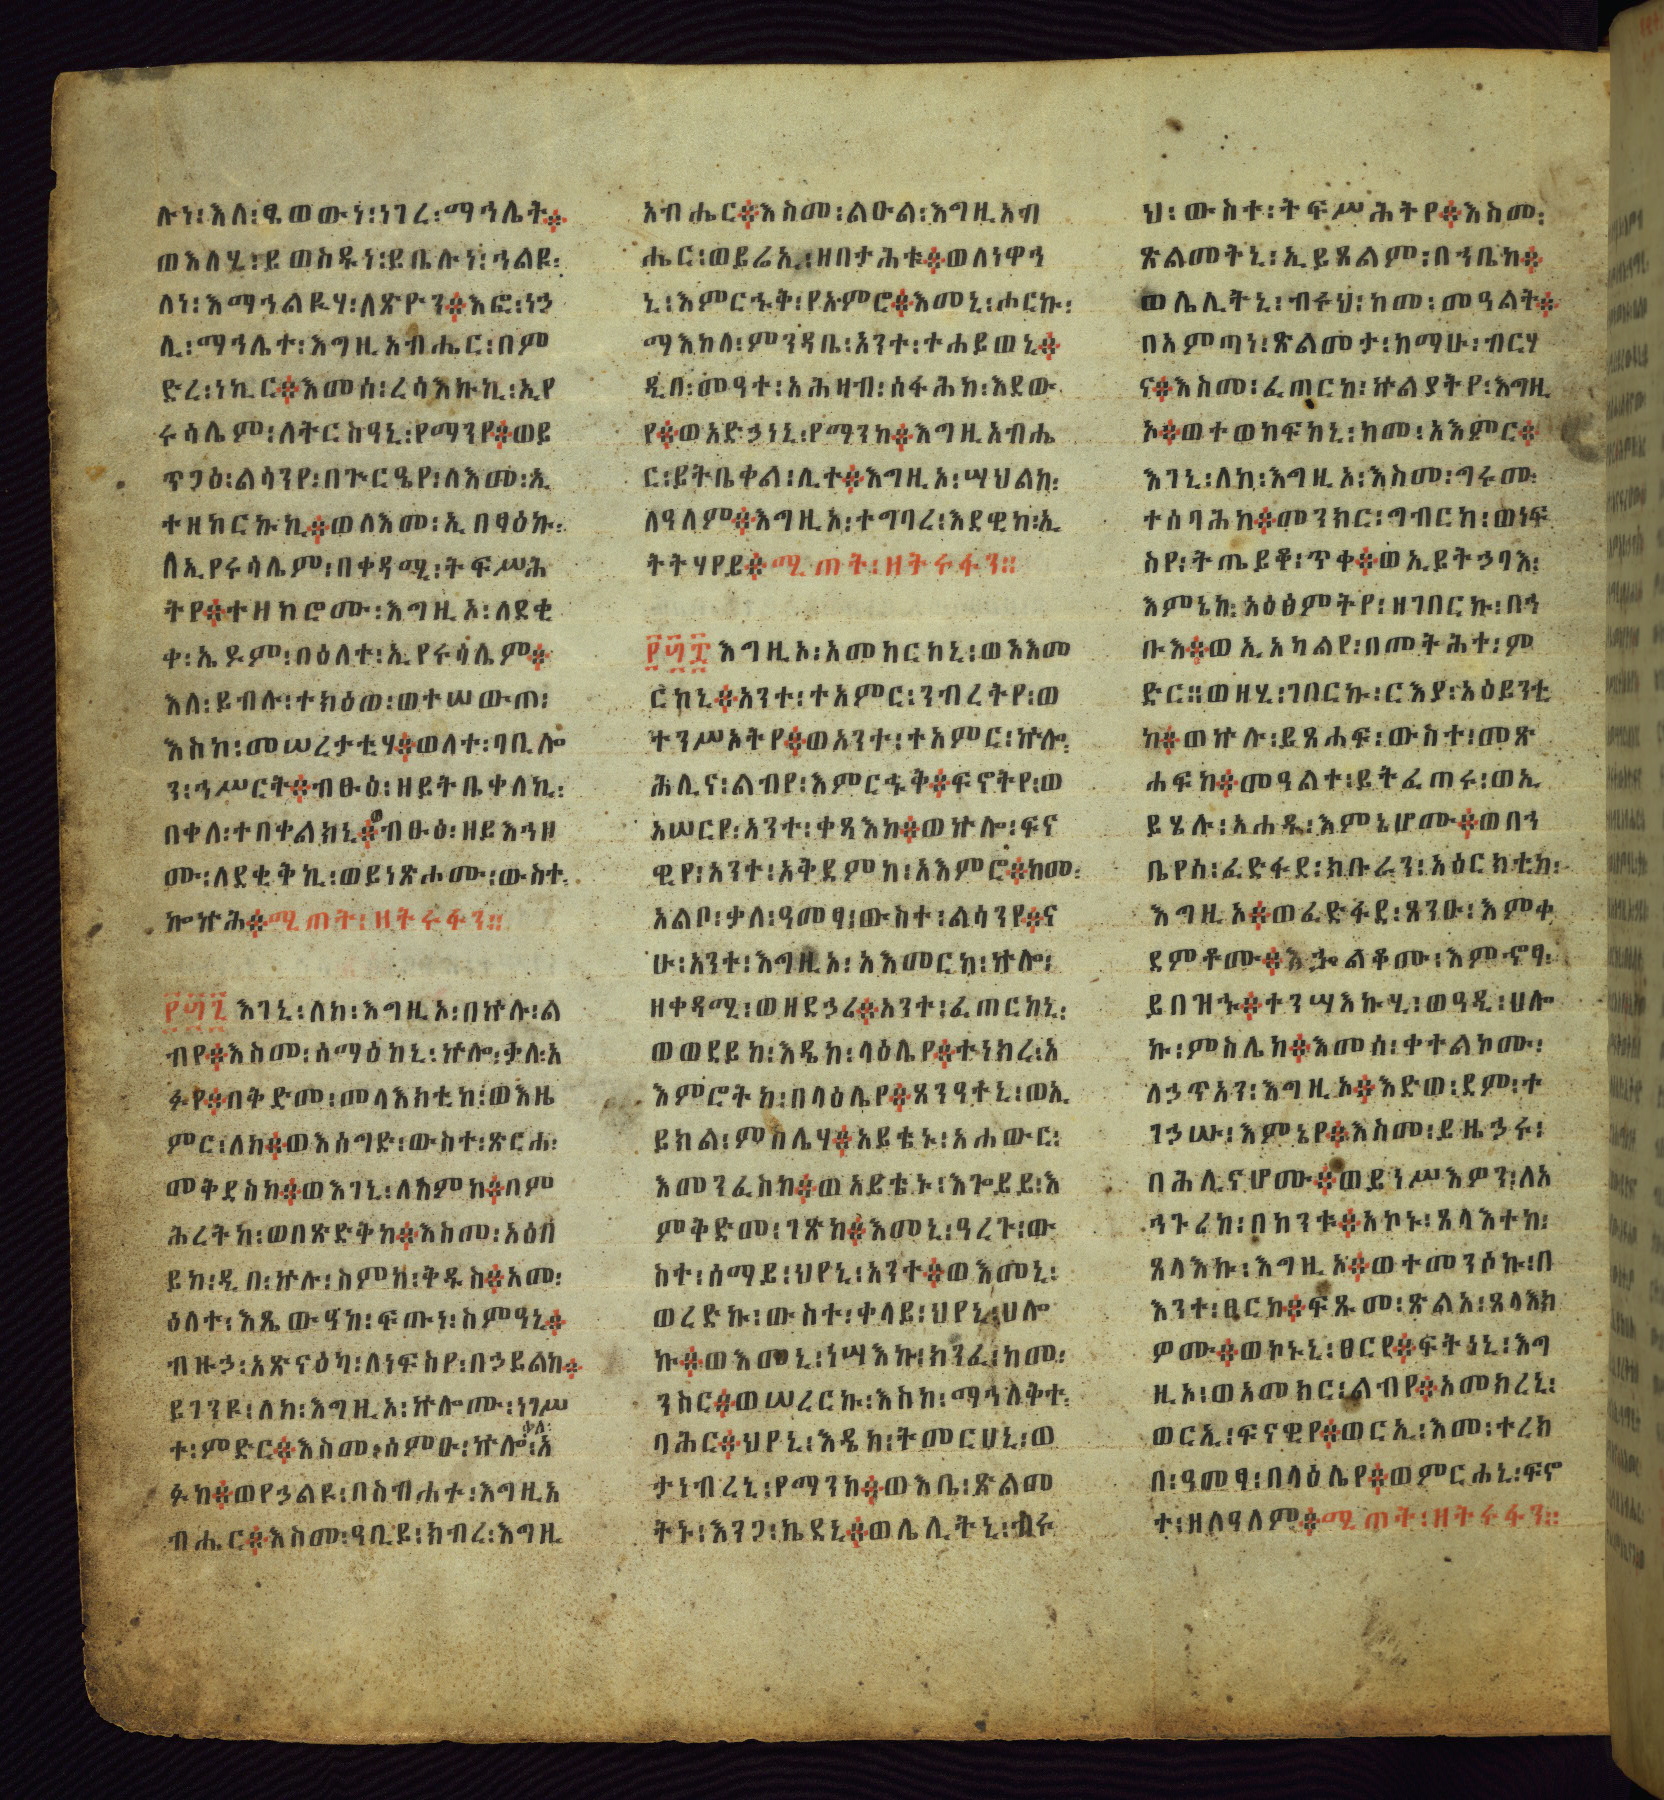 ሉነ፡እለ፡ፄወውነ፡ነገረ፡ማኅሌት፨
ወእለሂ፡ይወስዱነ፡ይቤሉነ፡ኅልዩ፡
ለነ፡እማኅልዪሃ፡ለጽዮን፨እፎ፡ነኃ
ሊ፡ማኅሌተ፡እግዚአብሔር፡በም
ድረ፡ነኪር፨እመሰ፡ረሳእኩኪ፡ኢየ
ሩሳሌም፡ለትርስዓኒ፡የማንየ፨ወይ
ጥጋዕ፡ልሳንየ፡በጉርዔየ፡ለእመ፡ኢ
ተዘከርኩኪ፨ወለእመ፡ኢበፃዕኩ፡
ለኢየሩሳሌም፡በቀዳሚ፡ትፍሥሕ
ትየ፨ተዘከሮሙ፡እግዚኦ፡ለደቂ
ቀ፡ኤዶም፡በዕለተ፡ኢየሩሳሌም፨
እለ፡ይብሉ፡ተክዕወ፡ወተሠውጠ፡
እስከ፡መሠረታቲሃ፨ወለተ፡ባቢሎ
ን፡ኅሥርት፨ብፁዕ፡ዘይትቤቀለኪ፡
በቀለ፡ተበቀልክኒ፨ብፁዕ፡ዘይእኅዘ
ሙ፡ለደቂቅኪ፡ወይነጽሖሙ፡ውስተ፡
ኰኵሕ፨ሚጠት፡ዘትሩፋን።
፻፴፯ እገኒ፡ለከ፡እግዚኦ፡በኵሉ፡ል
ብየ፨እስመ፡ሰማዕከኒ፡ኵሎ፡ቃለ፡አ
ፉየ፨በቅድመ፡መላእክቲከ፡ወእዜ
ምር፡ለከ፨ወእሰግድ፡ውስተ፡ጽርሐ፡
መቅደስከ፨ወእገኒ፡ለስምከ፨በም
ሕረትከ፡ወበጽድቅከ፨እስመ፡አዕበ
ይከ፡ዲበ፡ኵሉ፡ስምከ፡ቅዱስ፨አመ፡
ዕለተ፡እጼውዓከ፡ፍጡነ፡ስምዓኒ፨
ብዙኃ፡አጽናዕካ፡ለነፍስየ፡በኃይልከ፨
ይገንዩ፡ለከ፡እግዚኦ፡ኵሎሙ፡ነገሥ
ተ፡ምድር፨እስመ፡ሰምዑ፡ኵሎ፡ቃለ፡አ
ፉከ፨ወየኃልዩ፡በስብሐተ፡እግዚአ
ብሔር፨እስመ፡ዓቢይ፡ክብረ፡እግዚ
አብሔር፨እስመ፡ልዑል፡እግዚአብ
ሔር፡ወይሬኢ፡ዘበታሕቱ፨ወለነዋኅ
ኒ፡እምርኁቅ፡የአምሮ፨እመኒ፡ሖርኩ፡
ማእከለ፡ምንዳቤ፡አንተ፡ተሐይወኒ፨
ዲበ፡መዓተ፡አሕዛብ፡ሰፋሕከ፡እደው
የ፨ወአድኃነኒ፡የማንከ፨እግዚአብሔ
ር፡ይትቤቀል፡ሊተ፨እግዚኦ፡ሣህልከ፡
ለዓለም፨እግዚኦ፡ተግባረ፡እደዊከ፡ኢ
ትትሃየይ፨ሚጠት፡ዘትሩፋን።
፻፴፰ እግዚኦ፡አመከርከኒ፡ወአእመ
ርከኒ፨አንተ፡ተአምር፡ንብረትየ፡ወ
ተንሥኦትየ፨ወአንተ፡ተአምር፡ኵሎ፡
ሕሊና፡ልብየ፡እምርኁቅ፨ፍኖትየ፡ወ
አሠርየ፡አንተ፡ቀጻእከ፨ወኵሎ፡ፍና
ዊየ፡አንተ፡አቅደምከ፡አእምሮ፨ከመ፡
አልቦ፡ቃለ፡ዓመፃ፡ውስተ፡ልሳንየ፨ና
ሁ፡አንተ፡እግዚኦ፡አእመርከ፡ኵሎ፡
ዘቀዳሚ፡ወዘደኃረ፨አንተ፡ፈጠርከኒ፡
ወወደይከ፡እዴከ፡ላዕሌየ፨ተነክረ፡አ
እምሮትከ፡በላዕሌየ፨ጸንዓተኒ፡ወኢ
ይክል፡ምስሌሃ፨አይቴኑ፡አሐውር፡
እመንፈስከ፨ወአይቴኑ፡እጐይይ፡እ
ምቅድመ፡ገጽከ፨እመኒ፡ዓረጉ፡ው
ስተ፡ሰማይ፡ህየኒ፡አንተ፨ወእመኒ፡
ወረድኩ፡ውስተ፡ቀላይ፡ህየኒ፡ሀሎ
ኩ፨ወእመኒ፡ነሣእኩ፡ክንፈ፡ከመ፡
ንስር፨ወሠረርኩ፡እስከ፡ማኅለቅተ፡
ባሕር፨ህየኒ፡እዴከ፡ትመርሀኒ፡ወ
ታነብረኒ፡የማንከ፨ወእቤ፡ጽልመ
ትኑ፡እንጋ፡ኬደኒ፨ወሌሊትኒ፡ብሩ
ህ፡ውስተ፡ትፍሥሕትየ፨እስመ፡
ጽልመትኒ፡ኢይጸልም፡በኀቤከ፨
ወሌሊትኒ፡ብሩህ፡ከመ፡መዓልት፨
በአምጣነ፡ጽልመታ፡ከማሁ፡ብርሃ
ና፨እስመ፡ፈጠርከ፡ኵልያትየ፡እግዚ
ኦ፨ወተወከፍከኒ፡ከመ፡አእምር፨
እገኒ፡ለከ፡እግዚኦ፡እስመ፡ግሩመ፡
ተሰባሕከ፨መንክር፡ግብርከ፡ወነፍ
ስየ፡ትጤይቆ፡ጥቀ፨ወኢይትኃባእ፡
እምኔከ፡አዕፅምትየ፡ዘገበርኩ፡በኅ
ቡእ፨ወኢአካልየ፡በመትሕተ፡ም
ድር።ወዘሂ፡ገበርኩ፡ርእያ፡አዕይንቲ
ከ፨ወኵሉ፡ይጸሐፍ፡ውስተ፡መጽ
ሐፍከ፨መዓልተ፡ይትፈጠሩ፡ወኢ
ይሄሉ፡አሐዱ፡እምኔሆሙ፨ወበኀ
ቤየሰ፡ፈድፋደ፡ክቡራን፡አዕርክቲከ፡
እግዚኦ፨ወፈድፋደ፡ጸንዑ፡እምቀ
ደምቶሙ፨እኄልቆሙ፡እምኖፃ፡
ይበዝኁ፨ተንሣእኩሂ፡ወዓዲ፡ሀሎ
ኩ፡ምስሌከ፨እመሰ፡ቀተልኮሙ፡
ለኃጥአን፡እግዚኦ፨እድወ፡ደም፡ተ
ገኃሡ፡እምኔየ፨እስመ፡ይዜኃሩ፡
በሕሊናሆሙ፨ወይነሥእዎን፡ለአ
ኅጉረከ፡በከንቱ፨አኮኑ፡ጸላእተከ፡
ጸላእኩ፡እግዚኦ፨ወተመንሶኩ፡በ
እንተ፡ፀርከ፨ፍጹመ፡ጽልአ፡ጸላእክ
ዎሙ፨ወኮኑኒ፡ፀርየ፨ፍትነኒ፡እግ
ዚኦ፡ወአመክር፡ልብየ፨አመክረኒ፡
ወርኢ፡ፍናዊየ፨ወርኢ፡እመ፡ተረክ
በ፡ዓመፃ፡በላዕሌየ፨ወምርሐኒ፡ፍኖ
ተ፡ዘለዓለም፨ሚጠት፡ዘትሩፋን።